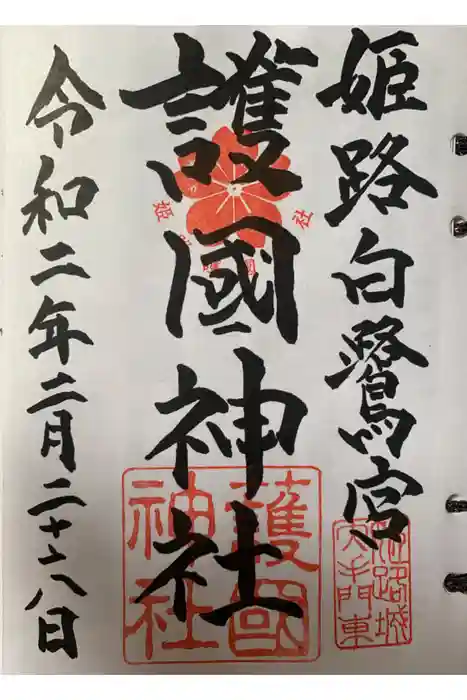 姫路白鷺宮
護國神社
令和二年二月二十六日
護國
神社
姫路城
大手門東